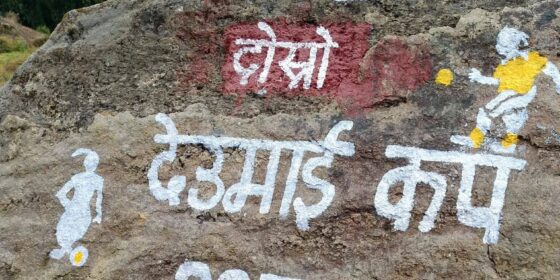 दोस्रो
देउमाई कप